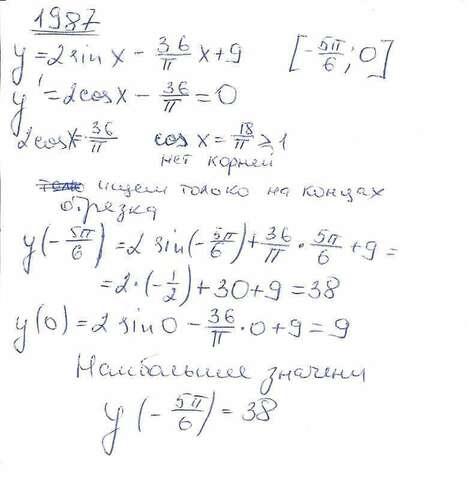 1987
y = 2 sin x - 36/π x + 9 [-5π/6; 0]
y' = 2cos x - 36/π = 0
2cos x = 36/π cos x = 18/π ≥ 1
нет корней
ищем только на концах
отрезка
y(-5π/6) = 2 sin(-5π/6) + 36/π · 5π/6 + 9 =
= 2·(-1/2) + 30 + 9 = 38
y(0) = 2 sin 0 - 36/π · 0 + 9 = 9
Наибольшее значени
y(-5π/6) = 38